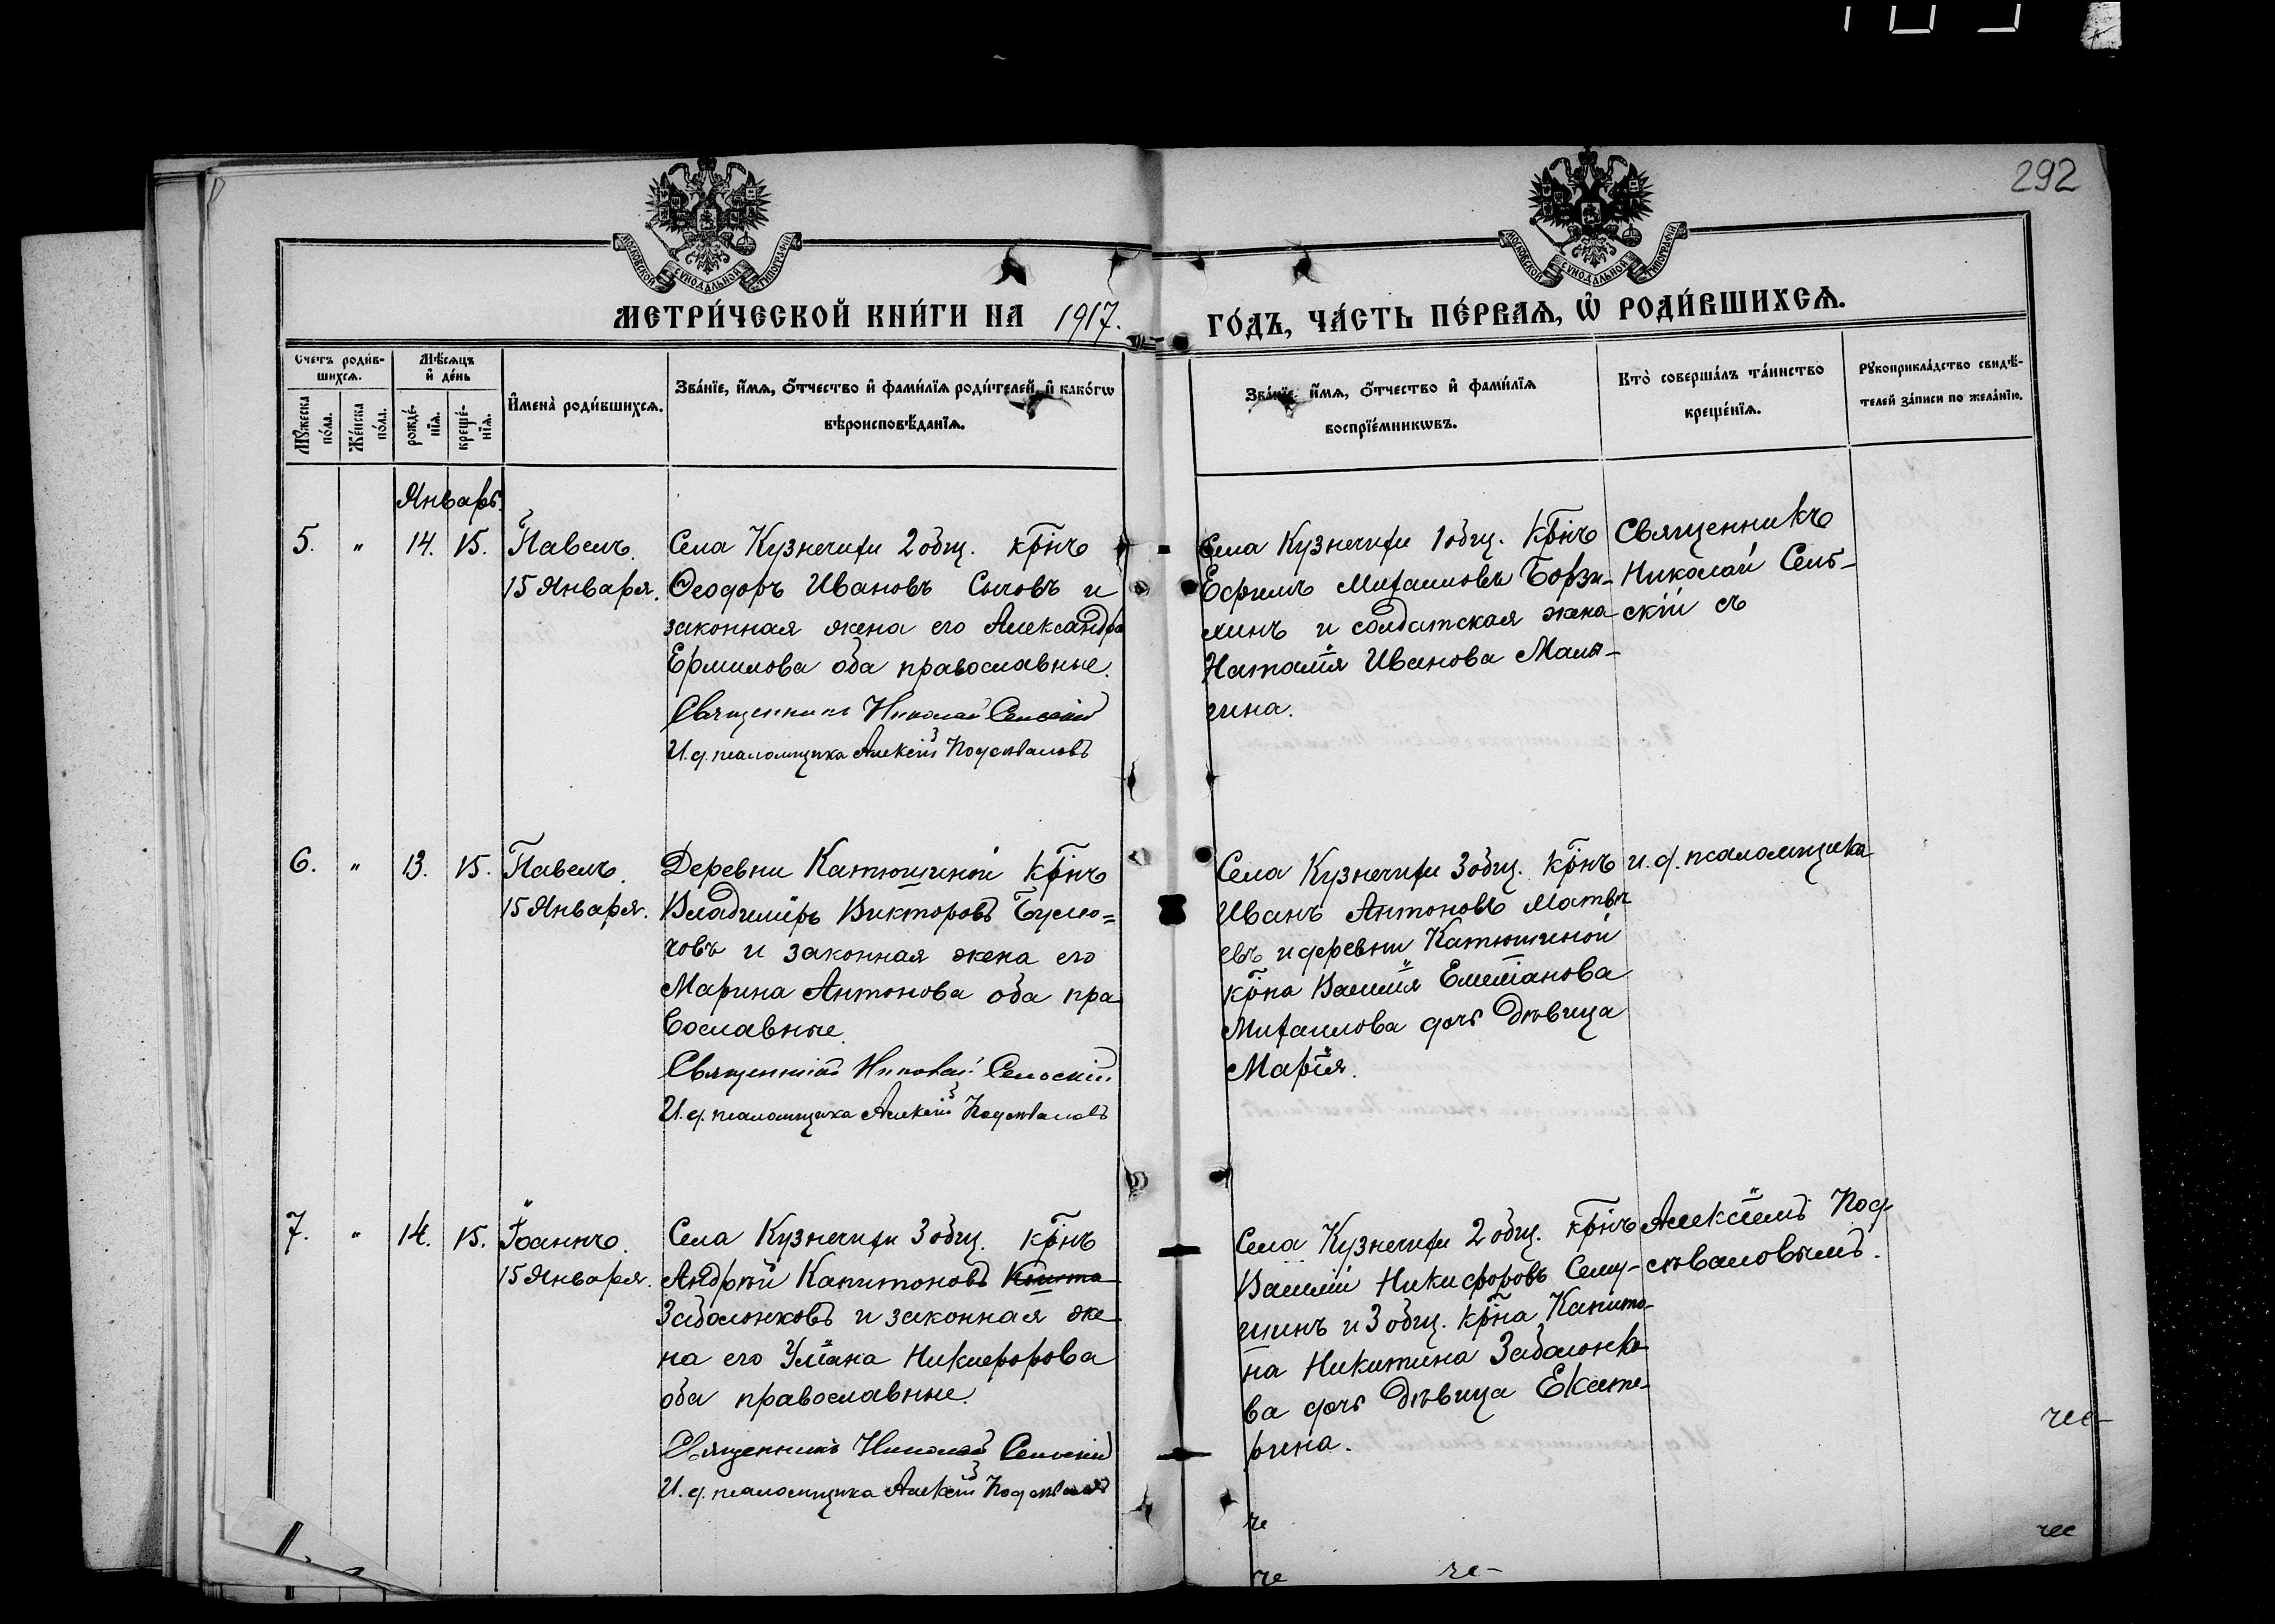 292
МОСКОВСКОЙ СѴНОДАЛЬНОЙ ТИПОГРАФІИ
МОСКОВСКОЙ СѴНОДАЛЬНОЙ ТИПОГРАФІИ
МЕТРИ́ЧЕСКОЙ КНИ́ГИ НА 1917. ГО́ДЪ, ЧА́СТЬ ПЕ́РВАѦ, Ѽ РОДИ́ВШИХСѦ.
Счетъ роди́в-
шихсѧ.
Мѣ́сѧцъ
и҆ де́нь
Мꙋ́жеска
по́ла.
Же́нска
по́ла.
рожде́-
нїѧ.
креще́-
нїѧ.
И҆мена̀ роди́вшихсѧ.
Зва́нїе, и҆́мѧ, ѻ҆́тчество и҆ фами́лїѧ роди́телей, и҆ како́гѡ
вѣроисповѣ́данїѧ.
Зва́нїе, и҆́мѧ, ѻ҆́тчество и҆ фами́лїѧ
воспрїе́мникѡвъ.
Кто̀ соверша́лъ та́инство
креще́нїѧ.
Рꙋкоприкла́дство свидѣ́-
телей за́писи по жела́нїю.
Январь.
5. " 14. 15. Павелъ.
15 Января.
Села Кузнечихи 2 общ. кр̅інъ
Ѳеодоръ Ивановъ Сычовъ и
законная жена его Александра
Ермилова оба православные.
Священникъ Николай Сельскій
И. д. псаломщика Алексій Подстваловъ
Села Кузнечихи 1 общ. кр̅інъ
Ефимъ Михаиловъ Борзи-
линъ и солдатская жена
Наталія Иванова Маля-
гина.
Священникъ
Николай Сель-
скій съ
6. " 13. 15. Павелъ.
15 Января.
Деревни Катюшиной кр̅інъ
Владиміръ Викторовъ
човъ и законная жена его
Марина Антонова оба пра-
вославные.
Священникъ Николай Сельскій
И. д. псаломщика Алексій Подстваловъ
Села Кузнечихи 3 общ. кр̅інъ
Иванъ Антоновъ Матвѣ-
евъ и деревни Катюшиной
кр̅іна Василія Емеліанова
Михаилова дочь дѣвица
Марія.
и. д. псаломщика
7. " 14. 15. Іоаннъ.
15 Января.
Села Кузнечихи 3 общ. кр̅інъ
Андрей Капитоновъ
Забалонковъ и законная же-
на его Уліана Никифорова
оба православные.
Священникъ Николай Сельскій
И. д. псаломщика Алексій Подстваловъ
Села Кузнечихи 2 общ. кр̅інъ
Василій Никифоровъ Сему-
шинъ и 3 общ. кр̅іна Капито-
на Никитина Забалонко-
ва дочь дѣвица Екате-
рина.
Алексіемъ Под-
стваловымъ.